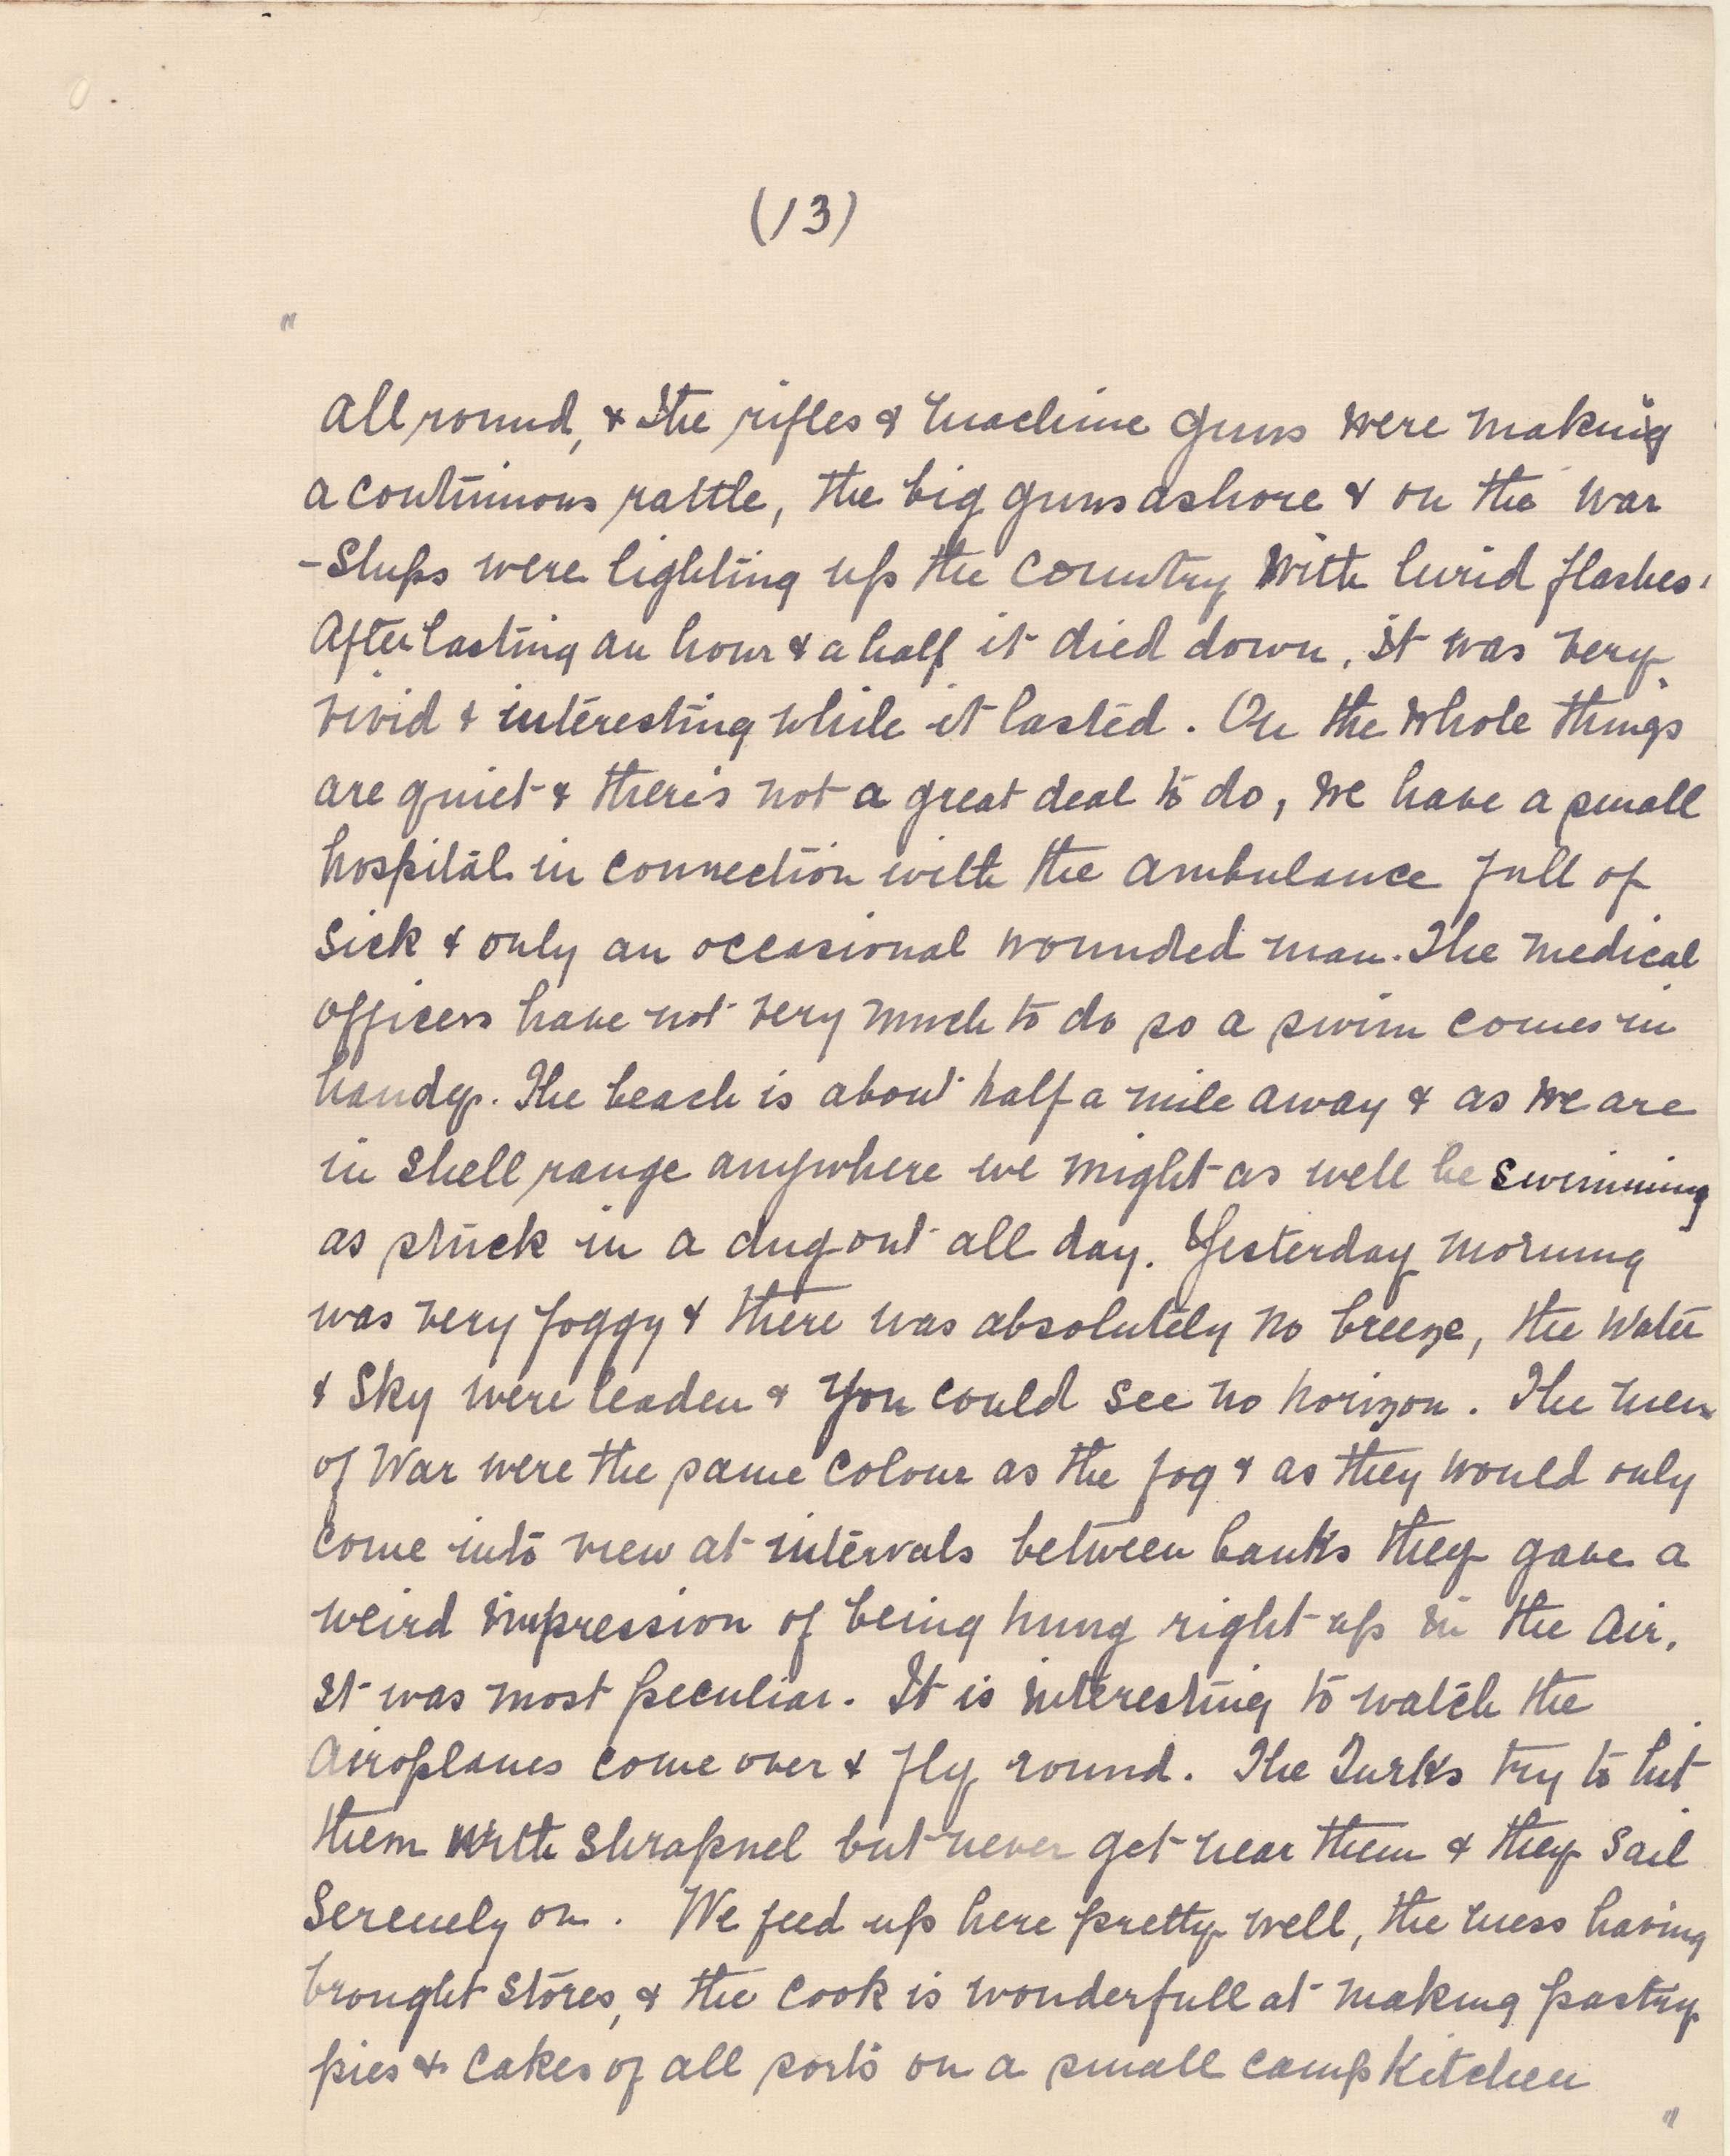 (13)
"
all round, & the rifles & machine guns were making
a continuous rattle, the big guns ashore & on the war
-ships were lighting up the country with lurid flashes.
After lasting an hour & a half it died down, it was very
vivid & interesting while it lasted. On the whole things
are quiet & there's not a great deal to do, we have a small
hospital in connection with the ambulance full of
sick & only an occasional wounded man. The medical
officers have not very much to do so a swim comes in
handy. The beach is about half a mile away & as we are
in shell range anywhere we might as well be swimming
as stuck in a dug out all day. Yesterday morning
was very foggy & there was absolutely no breeze, the water
& sky were leaden & you could see no horizon. The men
of War were the same colour as the fog & as they would only
come into view at intervals between banks they gave a
weird impression of being hung right up in the air,
it was most peculiar. It is interesting to watch the
airoplanes come over & fly round. The Turks try to hit
them with shrapnel but never get near them & they sail
serenely on. We feed up here pretty well, the mess having
brought stores, & the cook is wonderfull at making pastry
pies & cakes of all sorts on a small camp kitchen
"